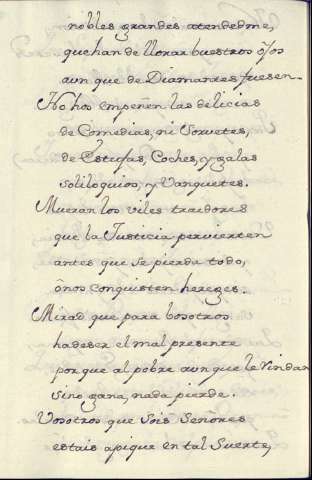 nobles grandes atendedme,
que han de llorar buestros ojos
aun que de Diamantes fuesen.
No hos empeñen las delicias
de Comedias, ni Sorvetes,
de Estufas, Coches, y galas
soliloquios, y Vanquetes.
Mueran los viles traidores
que la Justicia pervierten
antes que se pierda todo,
ô nos conquisten hereges.
Mirad que para bosotros
ha de ser el mal presente
porque al pobre aun que le rindan
sino gana, nada pierde.
Vosotros que sois Señores
estais apique en tal Suerte,